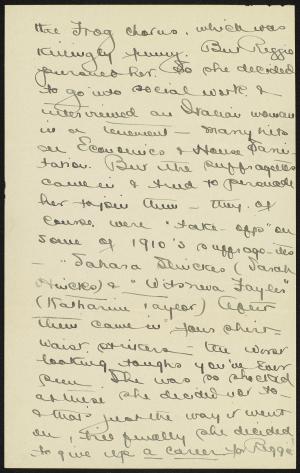 the Frog chorus, which was
killingly funny. But Reggie
pursued her. So she decided
to go into social work &
interviewed an Italian woman
in a tenement – many hits
on Economics & House Sani-
tation. But the suffragettes
came in & tried to persuade
her to join them – they, of
course, were "take-offs" on
some of 1910's suffrag-ites
– "Sahara Shickes (Sarah
Hinckes) & "Witonwa Tayles"
(Katharine Taylor) After
them came in four shirt
waist strikers – the worst
looking toughs you've ever
seen. She was so shocked
at these she decided not to –
& that's just the way it went
on, till finally she decided
to give up a career for Reggie